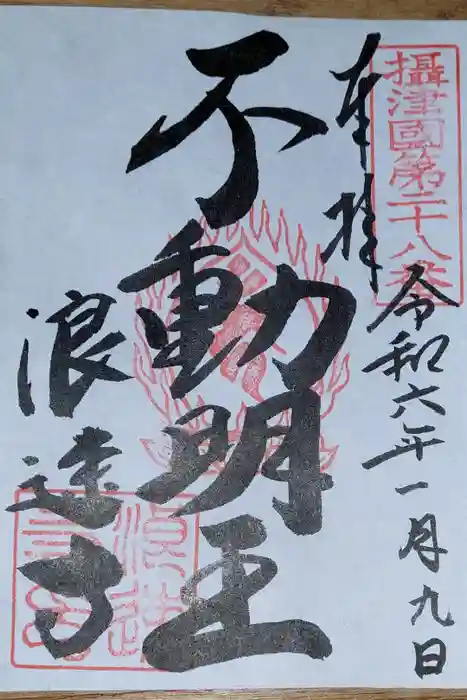 攝津國第二十八番
奉拝
令和六年一月九日
不動明王
浪速寺